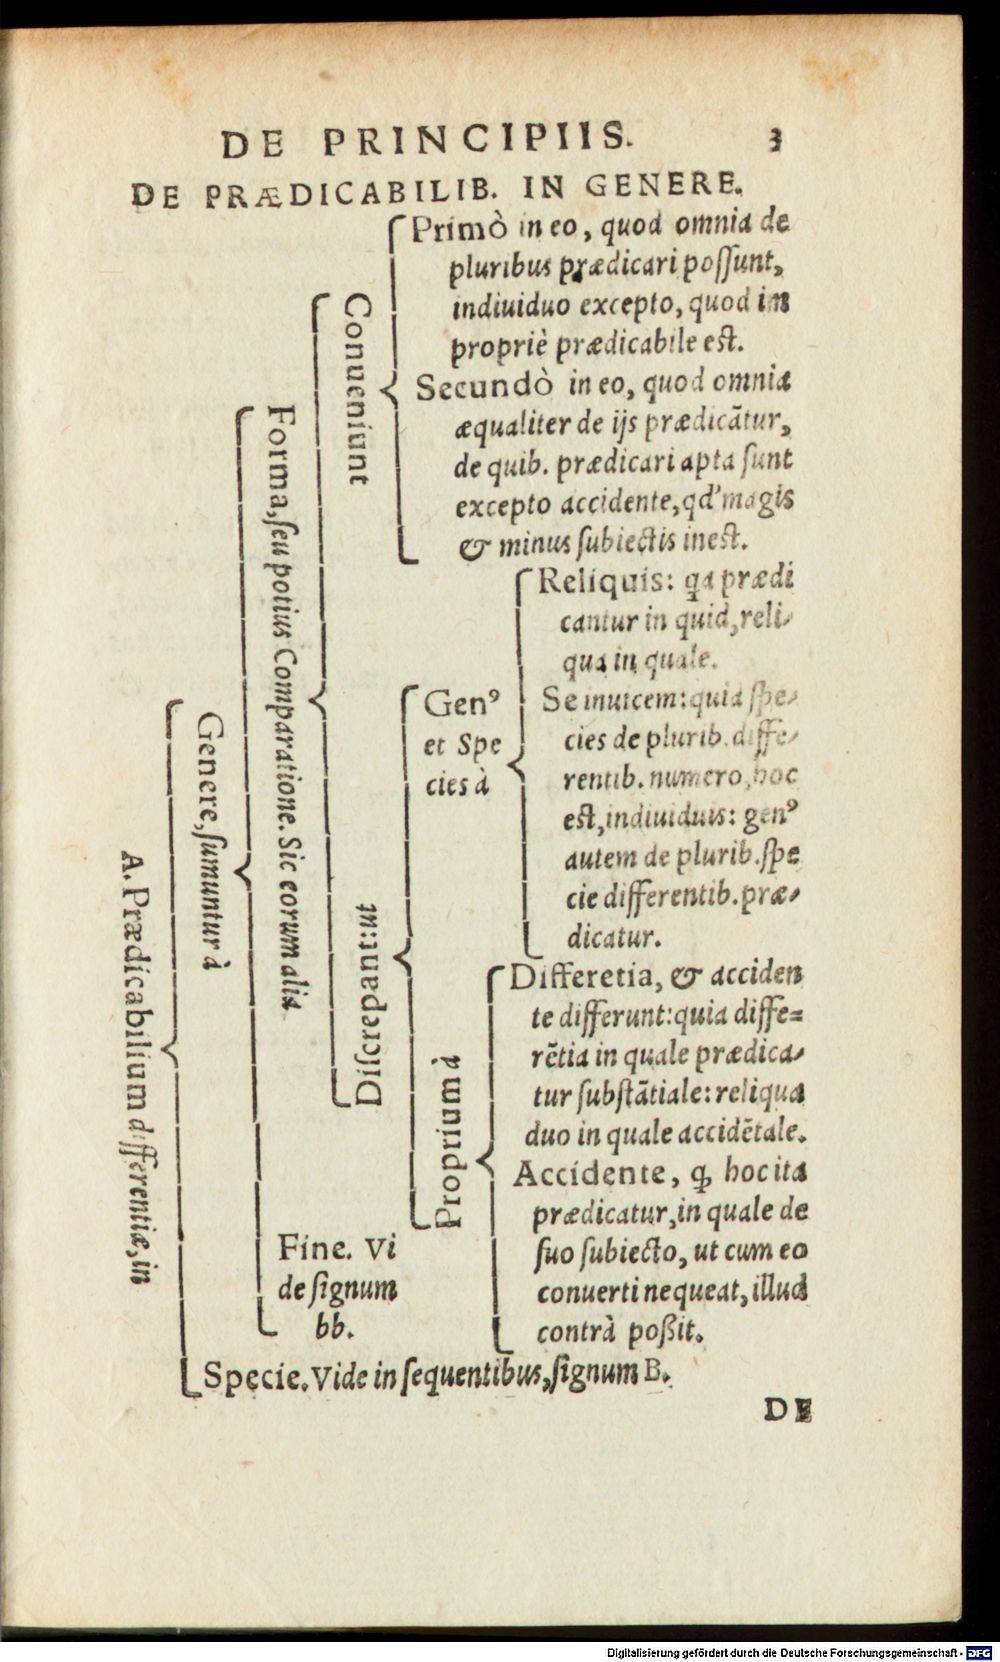 DE PRINCIPIIS. 3
DE PRÆDICABILIB. IN GENERE.
A. Prædicabilium differentiæ, in
Genere, ſumuntur à
Forma, ſeu potius Comparatione. Sic eorum alia
Conueniunt
Primò in eo, quod omnia de
pluribus prædicari poſſunt,
indiuiduo excepto, quod im
propriè prædicabile est.
Secundò in eo, quod omnia
æqualiter de ijs prædicātur,
de quib. prædicari apta ſunt
excepto accidente, qd' magis
& minus ſubiectis inest.
Diſcrepant: ut
Gen⁹
et Spe
cies à
Reliquis: qa prædi
cantur in quid, reli-
qua in quale.
Se inuicem: quia ſpe-
cies de plurib. diffe-
rentib. numero, hoc
est, indiuiduis: gen⁹
autem de plurib. ſpe
cie differentib. præ-
dicatur.
Proprium à
Differetia, & acciden
te differunt: quia diffe=
rētia in quale prædica-
tur ſubſtātiale: reliqua
duo in quale accidētale.
Accidente, ꝙ hoc ita
prædicatur, in quale de
ſuo ſubiecto, ut cum eo
conuerti nequeat, illud
contrà poßit.
Fine. Vi
de ſignum
bb.
Specie. Vide in ſequentibus, ſignum B.
DE
Digitalisierung gefördert durch die Deutsche Forschungsgemeinschaft - DFG